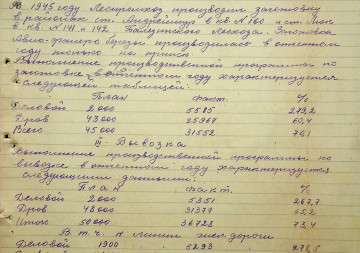 В 1945 году Лестранхоз производил заготовку
в районах ст. в кв. № 160 и ст.
в кв. № 141 и 142 Лесхоза. Заготовка
производилась в отчетном
году только на
Выполнение производственной программы по
заготовке в отчетном году характеризуется
следующей таблицей:
План Факт. %
Деловой 2000 5585 279,2
Дров 43000 25967 60,4
Всего 45000 31552 70,1
III Вывозка
Выполнение производственной программы по
вывозке в отчетном году характеризуется
следующими данными:
План Факт. %
Деловой 2000 5351 267,7
Дров 48000 31377 65,2
Итого 50000 36728 73,4
В т. ч. к линии жел. дороги
Деловой 1900 5293 278,5